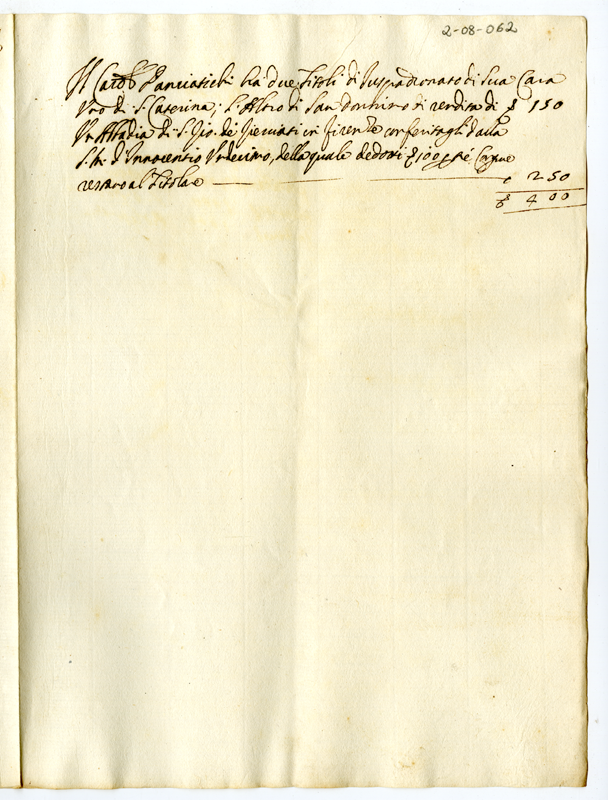 2-08-062
Il Card.l Panciatichi ha due Titoli di Juspadronato di Sua Casa
Uno di S. Caterina; l'Altro di San Domenico di rendita di ₷ 150
Un Abbadia di S. Gio. de in Firenze conferitagli dalla
S.M. d'Innocentio Undecimo, della quale dedotti ₷ 100
restano al Titolare 250
₷ 400